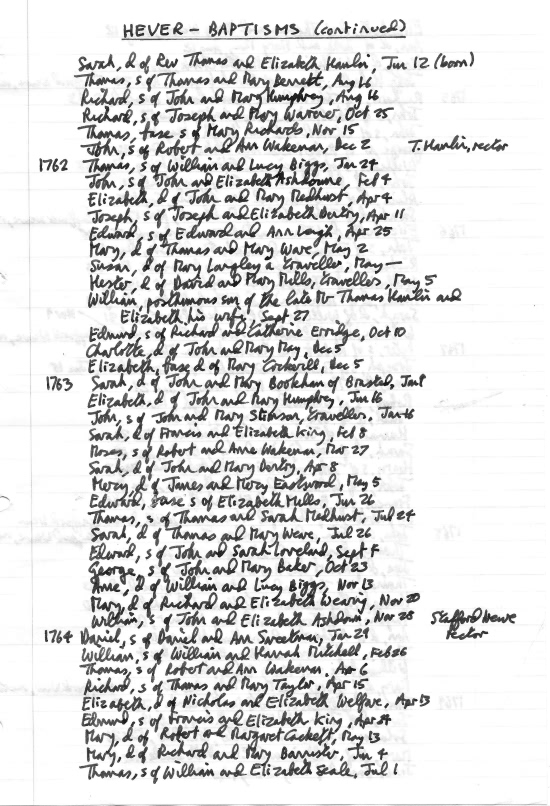 HEVER – BAPTISMS (continued)
Sarah, d of Rev Thomas and Elizabeth Hamlin, Jun 12 (born)
Thomas, s of Thomas and Mary Bennett, Aug 16
Richard, s of John and Mary Humphrey, Aug 16
Richard, s of Joseph and Mary Warener, Oct 25
Thomas, base s of Mary Richards, Nov 15
John, s of Robert and Ann Wakenan, Dec 2 T. Hamlin, rector
1762 Thomas, s of William and Lucy Biggs, Jan 24
John, s of John and Elizabeth Ashdowne, Feb 4
Elizabeth, d of John and Mary Medhurst, Apr 4
Joseph, s of Joseph and Elizabeth Denby, Apr 11
Edward, s of Edward and Ann Leigh, Apr 25
Mary, d of Thomas and Mary Ware, May 2
Susan, d of Mary Langley a traveller, May —
Hester, d of David and Mary Mills, travellers, May 5
William, posthumous son of the late Mr Thomas Hamlin and
Elizabeth his wife, Sept 27
Edmund, s of Richard and Catherine Erridge, Oct 10
Charlotte, d of John and Mary May, Dec 5
Elizabeth, base d of Mary Cockrill, Dec 5
1763 Sarah, d of John and Mary Bookham of Brasted, Jan 9
Elizabeth, d of John and Mary Humphrey, Jan 16
John, s of John and Mary Stinson, travellers, Jan 16
Sarah, d of Francis and Elizabeth King, Feb 8
Moses, s of Robert and Anne Wakenan, Mar 27
Sarah, d of John and Mary Denby, Apr 8
Mercy, d of James and Mercy Eastwood, May 5
Edward, base s of Elizabeth Mills, Jun 26
Thomas, s of Thomas and Sarah Medhurst, Jul 24
Sarah, d of Thomas and Mary Weave, Jul 26
Edward, s of John and Sarah Loveland, Sept
George, s of John and Mary Baker, Oct 23
Anne, d of William and Lucy Biggs, Nov 13
Mary, d of Richard and Elizabeth Wearing, Nov 20
William, s of John and Elizabeth Ashdown, Nov 28 Stafford Newe
rector
1764 Daniel, s of Daniel and Ann Sweetman, Jan 29
William, s of William and Hannah Mitchell, Feb 26
Thomas, s of Robert and Ann Wakenan, Apr 6
Richard, s of Thomas and Mary Taylor, Apr 15
Elizabeth, d of Nicholas and Elizabeth Welfare, Apr 13
Edmund, s of Francis and Elizabeth King, Apr 24
Mary, d of Robert and Margaret Cackett, May 13
Mary, d of Richard and Mary Barrister, Jun 4
Thomas, s of William and Elizabeth Seale, Jul 1